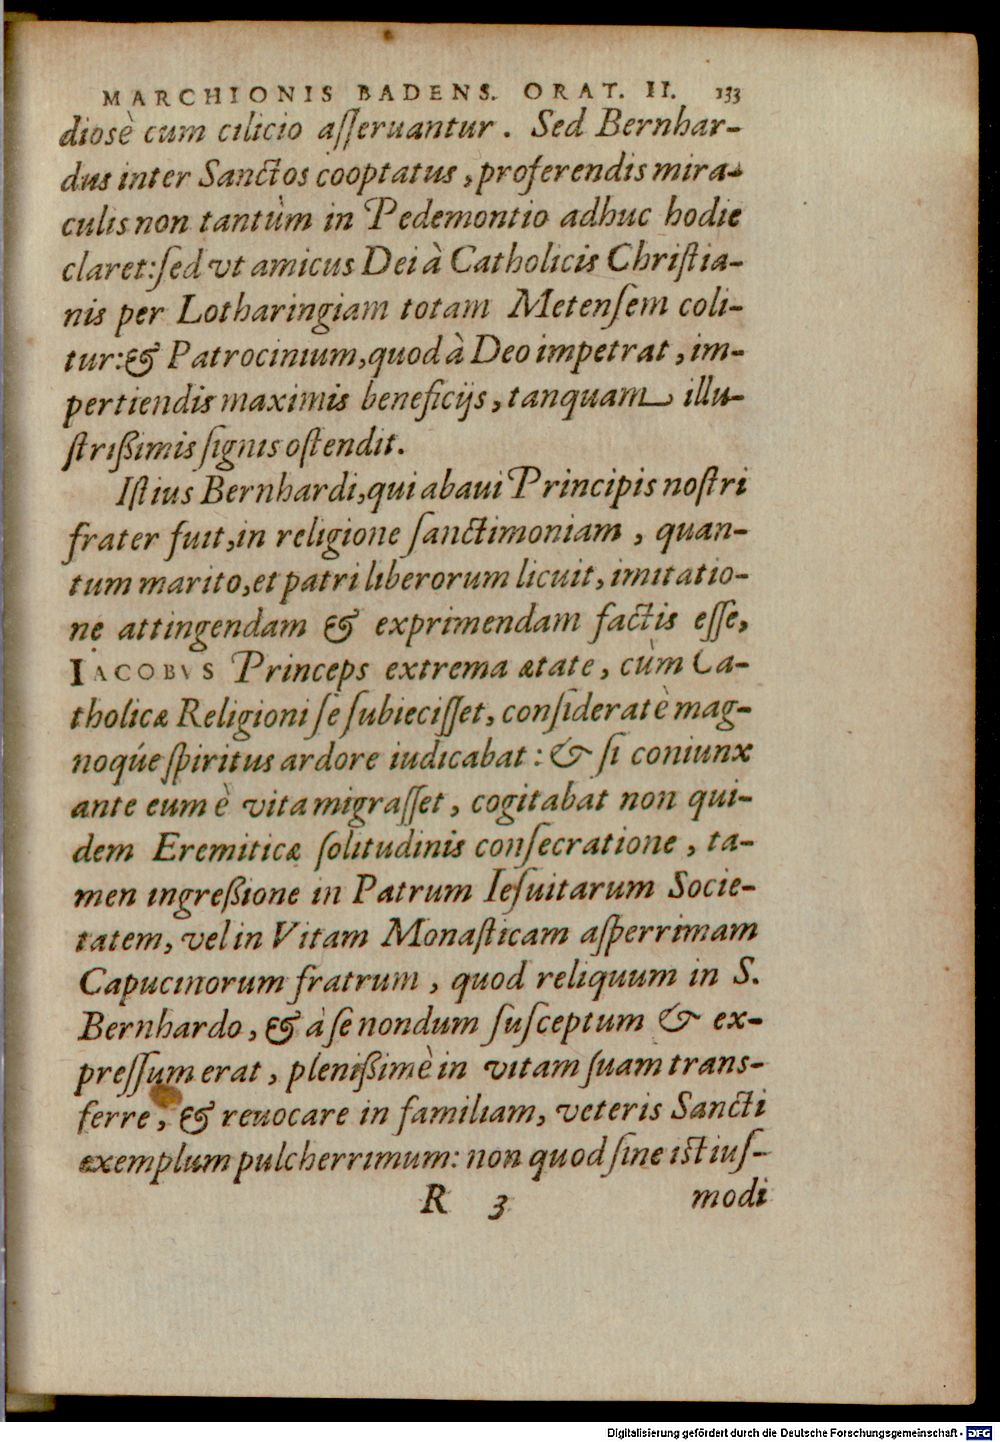 MARCHIONIS BADENS. ORAT. II. 133
diosè cum cilicio aſſeruantur. Sed Bernhar-
dus inter Sanctos cooptatus, proferendis mira-
culis non tantùm in Pedemontio adhuc hodie
claret: ſed vt amicus Dei à Catholicis Chriſtia-
nis per Lotharingiam totam Metenſem coli-
tur: & Patrocinium, quod à Deo impetrat, im-
pertiendis maximis beneficijs, tanquam illu-
ſtrißimis ſignis oſtendit.
Iſtius Bernhardi, qui abaui Principis noſtri
frater fuit, in religione ſanctimoniam, quan-
tum marito, et patri liberorum licuit, imitatio-
ne attingendam & exprimendam factis eſſe,
IACOBVS Princeps extrema ætate, cùm Ca-
tholicæ Religioni ſe ſubieciſſet, conſideratè mag-
noq́ue ſpiritus ardore iudicabat: & ſi coniunx
ante eum è vita migraſſet, cogitabat non qui-
dem Eremiticæ ſolitudinis conſecratione, ta-
men ingreßione in Patrum Ieſuitarum Socie-
tatem, vel in Vitam Monaſticam aſperrimam
Capucinorum fratrum, quod reliquum in S.
Bernhardo, & à ſe nondum ſuſceptum & ex-
preſſum erat, plenißimè in vitam ſuam trans-
ferre, & reuocare in familiam, veteris Sancti
exemplum pulcherrimum: non quod ſine iſtiuſ-
R 3 modi
Digitalisierung gefördert durch die Deutsche Forschungsgemeinschaft - DFG